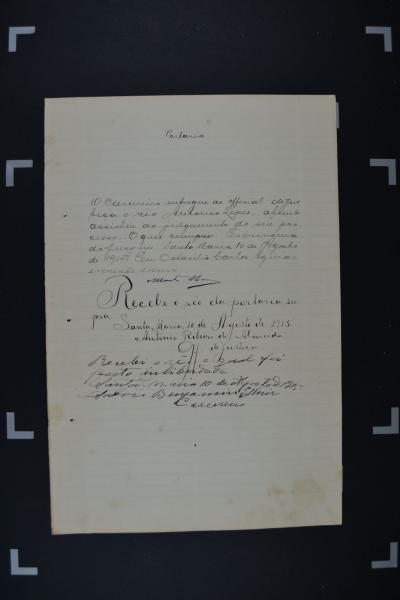 Portaria
O Carcereiro entregue ao official de jus
tiça o réo Antonio Lopes, afim de
assistir ao julgamento de seu pro
cesso. O que cumpra.
do Jury em Santa Maria 10 de Agosto
de 1915. Eu Carlos
escrivão
Recebi o réo da portaria su
pra
Santa Maria, 10 de Agosto de 1915
Antonio Ribeiro de Almeida
Off. de justiça
Recebi o réo o qual foi
posto in liberdade
Santa Maria 10 de Agosto de
Benjamim
Carcereiro